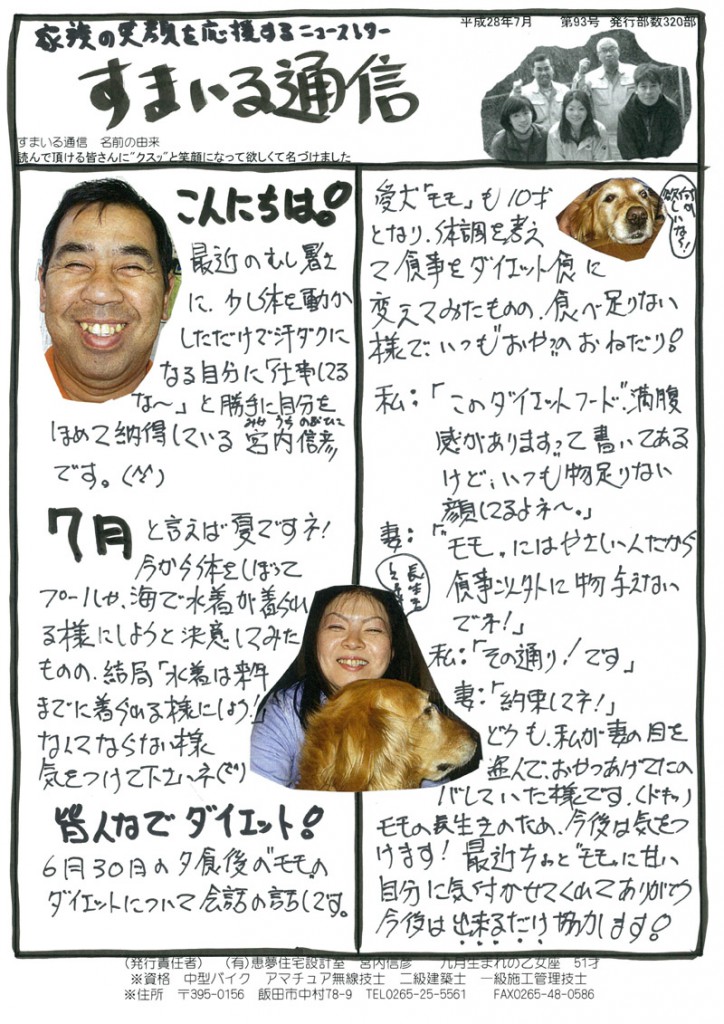 平成28年7月　第93号　発行部数320部
家族の笑顔を応援するニュースレター
すまいる通信
すまいる通信　名前の由来
読んで頂ける皆さんに"クスッ"と笑顔になって欲しくて名づけました
こんにちは。
最近のむし暑さ
に、少し体を動か
しただけで汗ダクに
なる自分に「仕事してる
な～」と勝手に自分を
ほめて納得している 宮内信彦
みやうちのぶひこ
です。(^^)
7月と言えば夏ですネ!
今から体をしぼって
プールや、海で水着が着られ
る様にしようと決意してみた
ものの、結局「水着は来年
までに着られる様にしよう!」
なんてならない様
気をつけて下さいネ(^^)
皆んなでダイエット!
6月30日の夕食後の"モモ"の
ダイエットについて会話の話しです。
愛犬「モモ」も10才
となり、体調を考え
て食事をダイエット食に
変えてみたものの、食べ足りない
様で、いつも"おやつ"のおねだり!
私:「このダイエットフード"満腹
感があります"って書いてある
けど、いつも物足りない
顔してるよネ～。」
妻:「"モモ"にはやさしい人だから
食事以外に物与えない
でネ!」
長生き
私:「その通り!です」
妻:「約束してネ!」
どうも、私が妻の目を
盗んで、おやつあげてたの
バレていた様です。(ドキッ)
モモの長生きのため、今後は気をつ
けます! 最近ちょっと"モモ"に甘い
自分に気付かせてくれてありがとう
今後は出来るだけ協力します!
(発行責任者)　(有)恵夢住宅設計室　宮内信彦　九月生まれの乙女座　51才
※資格　中型バイク　アマチュア無線技士　二級建築士　一級施工管理技士
※住所　〒395-0156　飯田市中村78-9　TEL0265-25-5561　FAX0265-48-0586